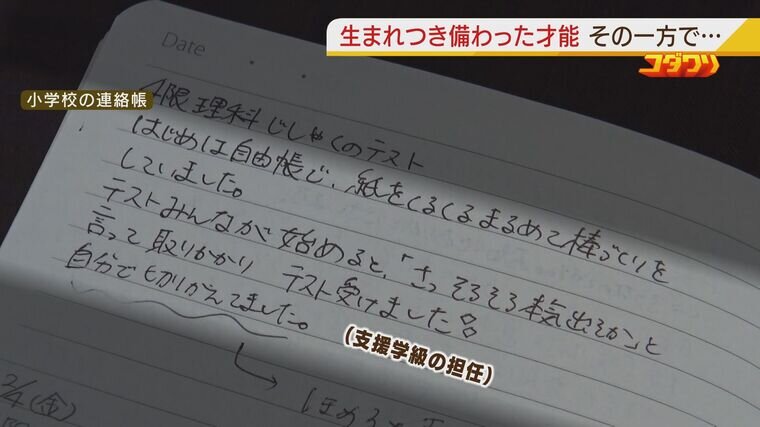 生まれつき備わった才能 その一方で…
コダワリ
Date
小学校の連絡帳
4限 理科 じしゃくのテスト
はじめは自由帳で、紙をくるくるまるめて棒づくりを
していました。
テストみんなが始めると、「さっそろそろ本気出そか」と
言って取りかかり テスト受けました
自分できりかえてました。
(支援学級の担任)
2/4(金)
ほめる